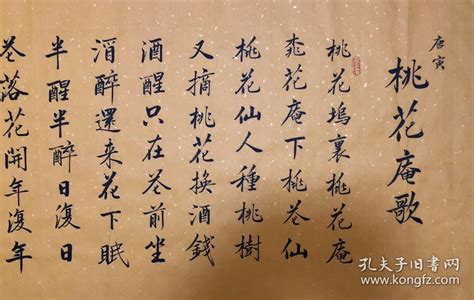 唐寅
桃花庵歌
桃花塢裏桃花庵
桃花庵下桃花仙
桃花仙人種桃樹
又摘桃花換酒錢
酒醒只在花前坐
酒醉還来花下眠
半醒半醉日復日
花落花開年復年
孔夫子旧书网
www.kongfz.com